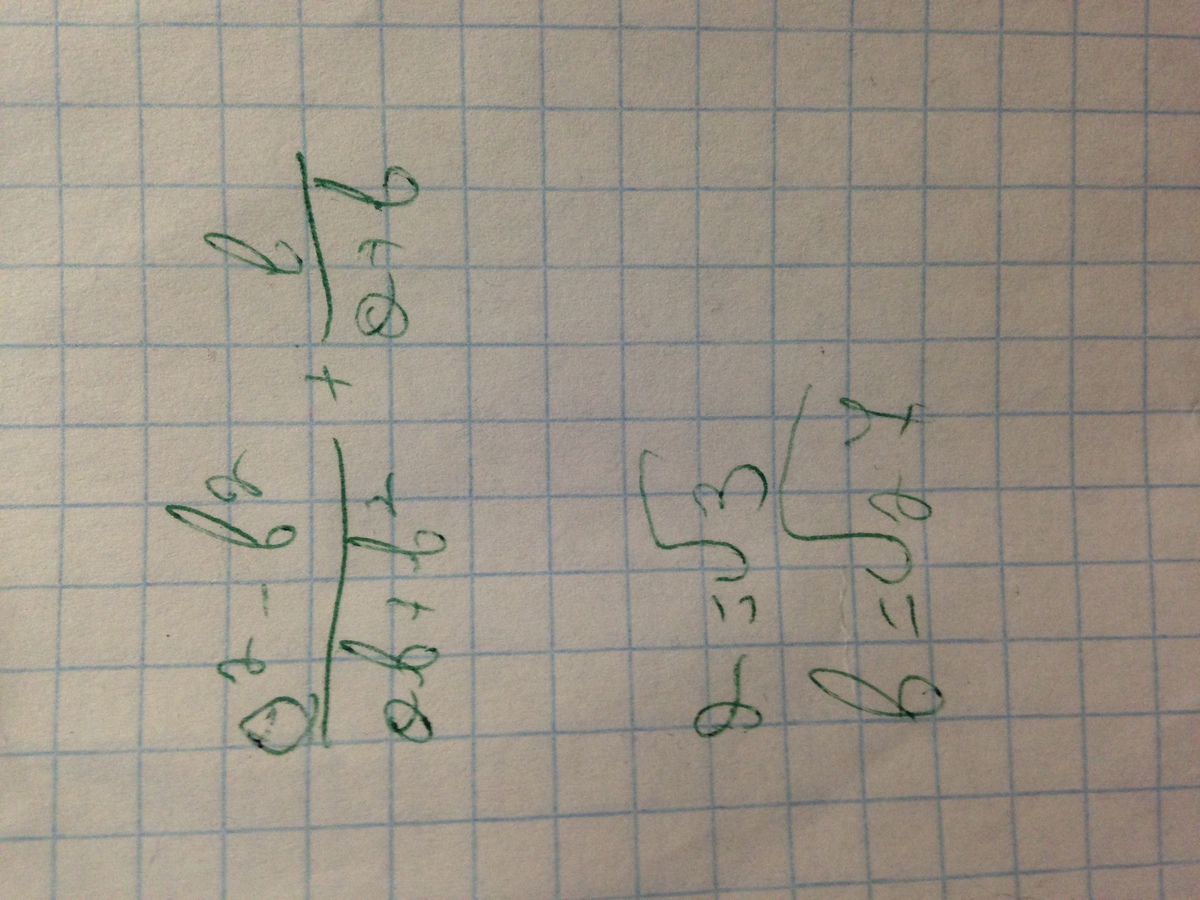 a² - b² / ab + b² + b / a + b
a = √3
b = √27